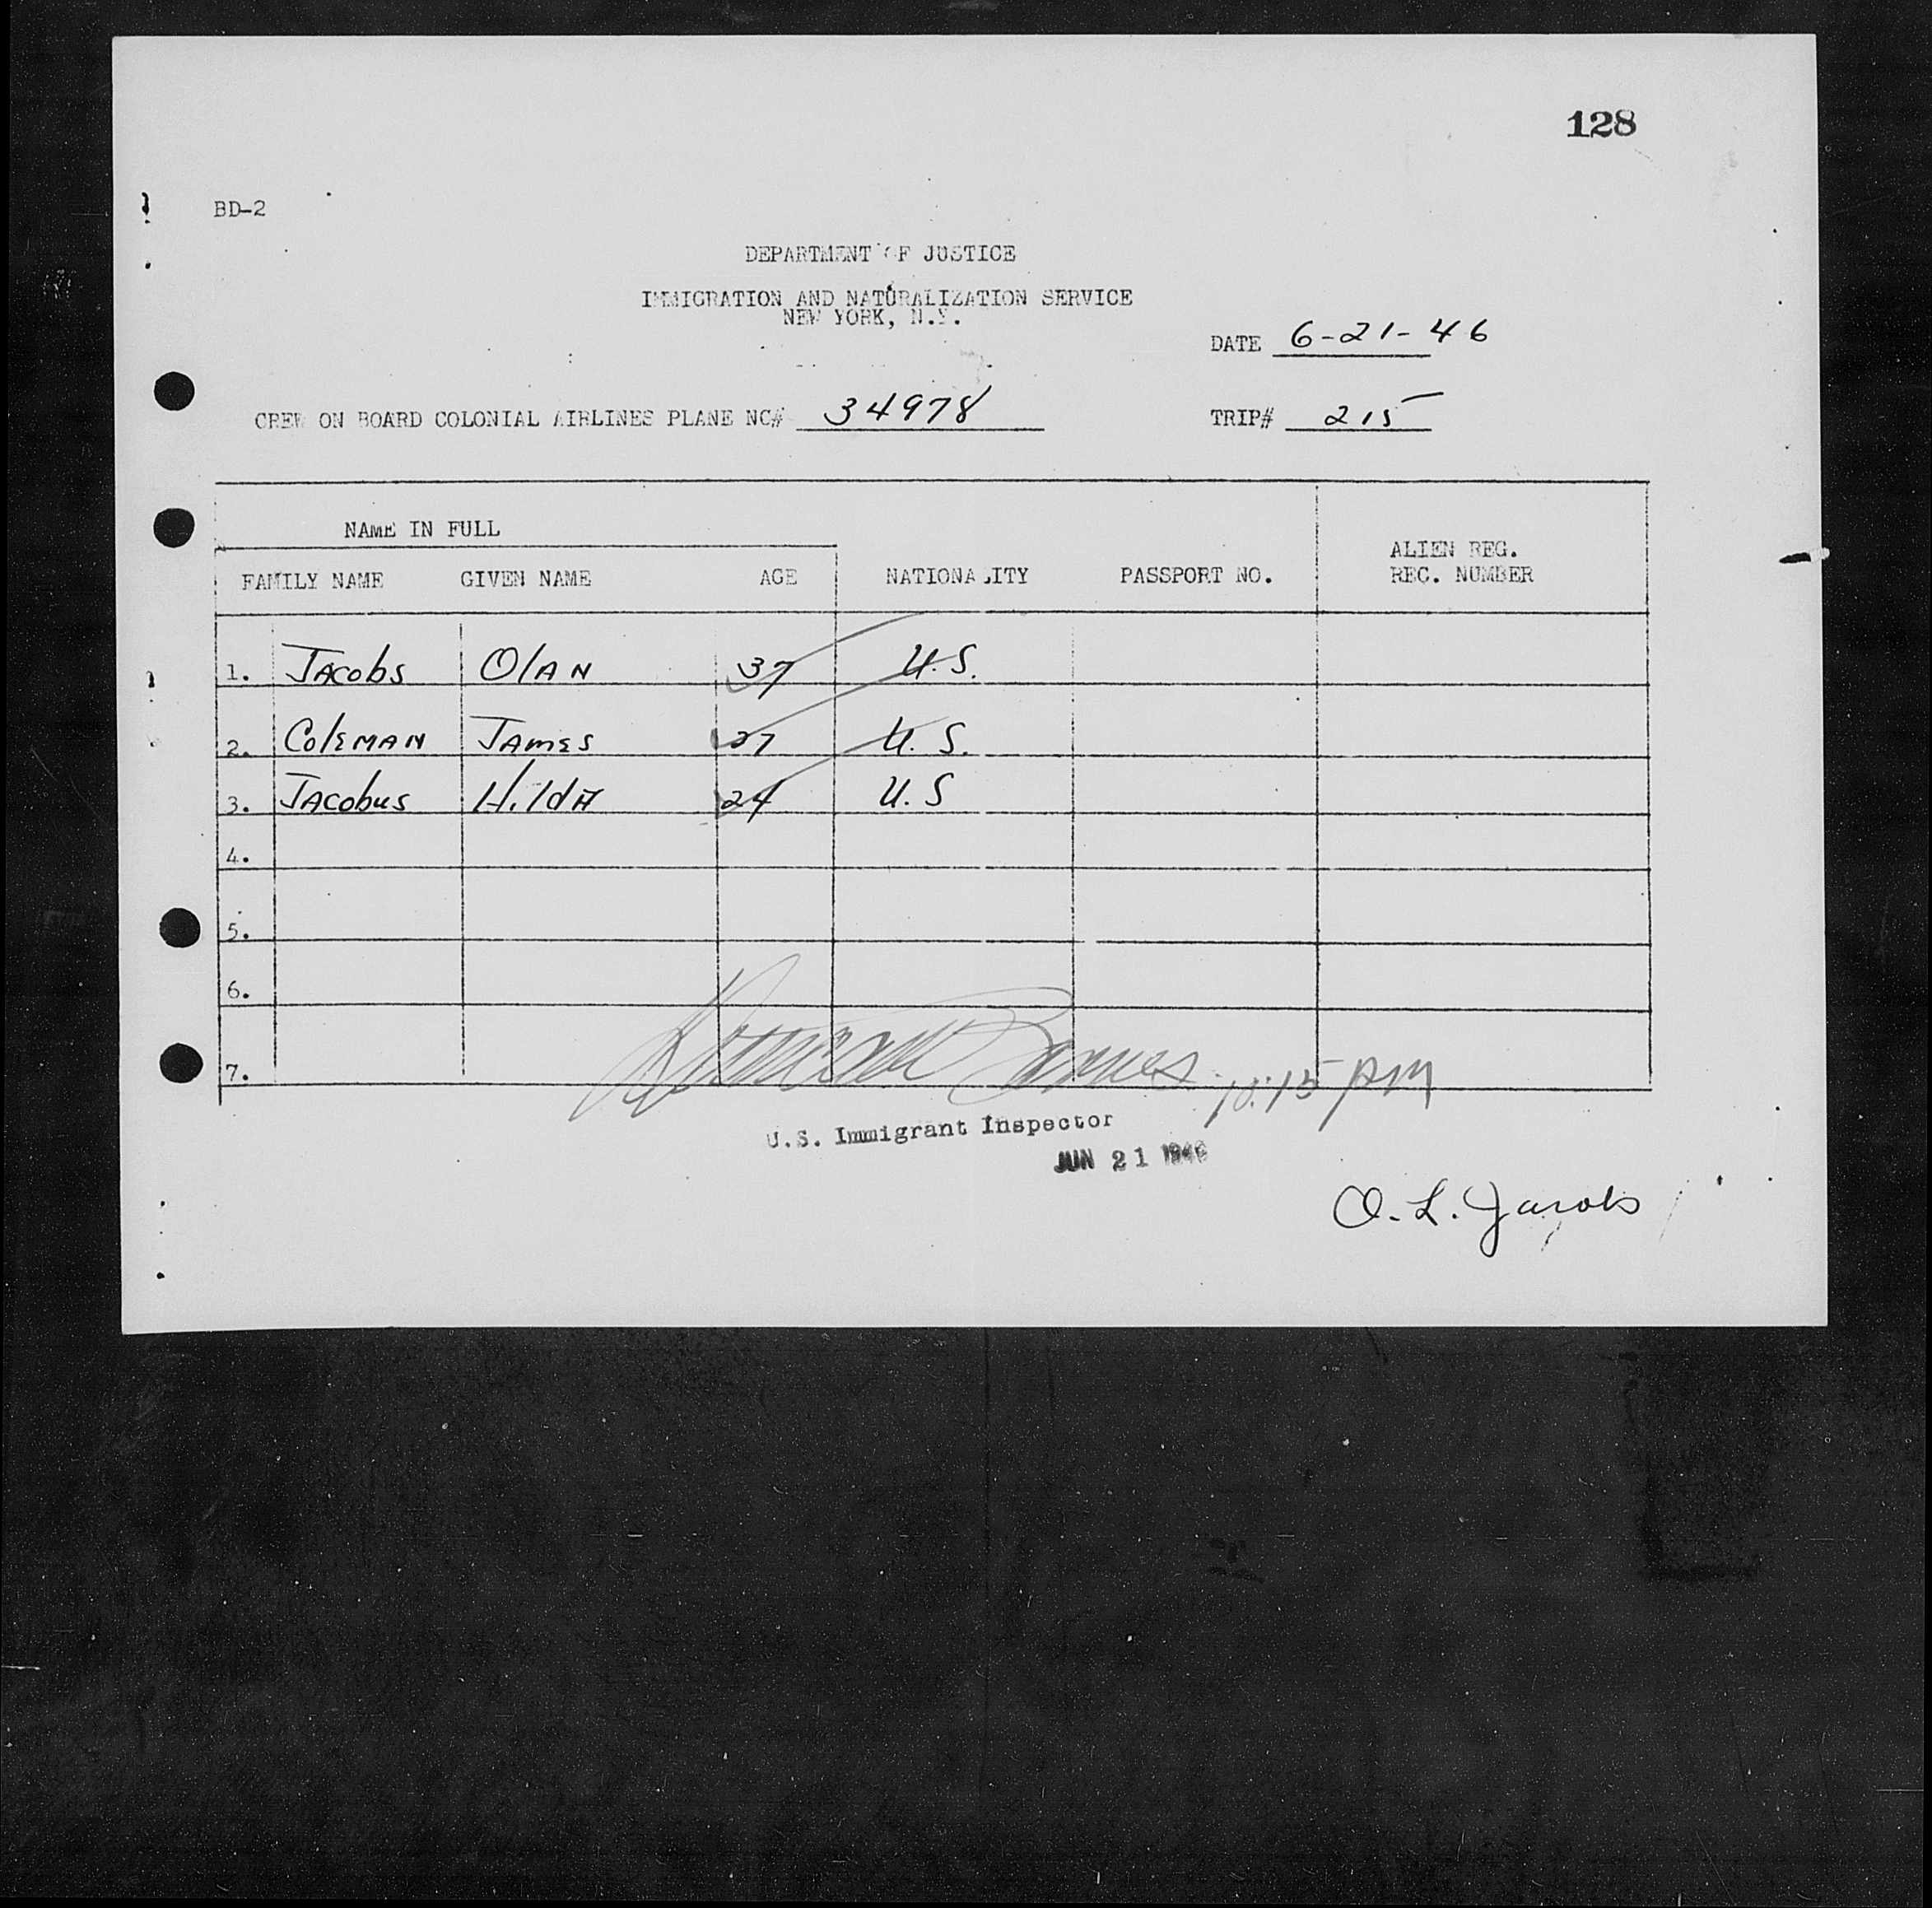 128
BD-2
DEPARTMENT OF JUSTICE
IMMIGRATION AND NATURALIZATION SERVICE
NEW YORK, N.Y.
DATE 6-21-46
CREW ON BOARD COLONIAL AIRLINES PLANE NC# 34978 TRIP# 215
NAME IN FULL
FAMILY NAME GIVEN NAME AGE NATIONALITY PASSPORT NO. ALIEN REG. REC. NUMBER
1. Jacobs Olan 37 U.S.
2. Coleman James 27 U.S.
3. Jacobus Hilda 24 U.S
4.
5.
6.
7.
10:15 PM
U.S. Immigrant Inspector
JUN 21 1946
O. L. Jacobs